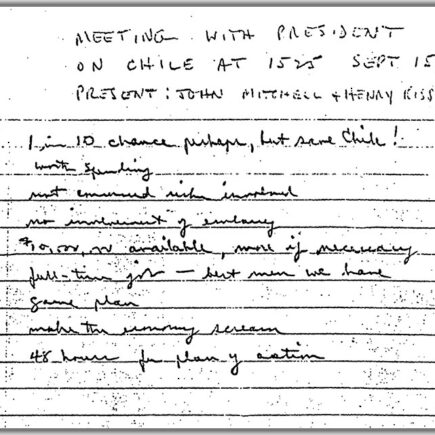 MEETING WITH PRESIDENT
ON CHILE AT 1525 SEPT 15
PRESENT: JOHN MITCHELL + HENRY KISS
1 in 10 chance perhaps, but save Chile!
worth spending
not concerned risks involved
no involvement of embassy
$10,000,00 available, more if necessary
full-time job — best men we have
game plan
make the economy scream
48 hours for plan of action